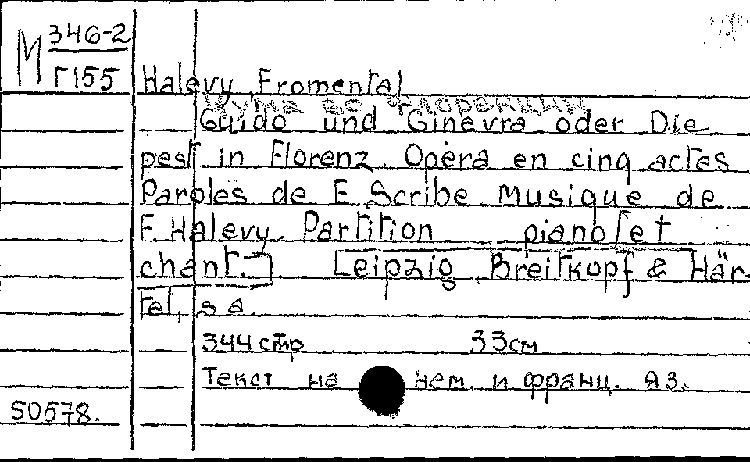 М 346-2
Г155
Halevy Fromental
Чума во Флоренции
Guido und Ginevra oder Die
pest in Florenz. Opéra en cinq actes
Paroles de E. Scribe Musique de
F. Halevy Partition piano et
chant. Leipzig, Breitkopf & Här-
tel, s a.
344 стр 33см
Текст на нем. и франц. яз.
50578.